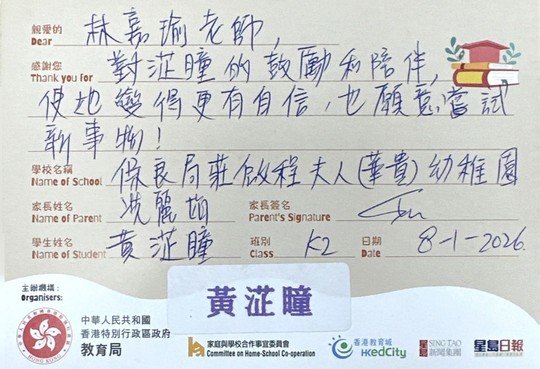 親愛的 林嘉瑜老師，
Dear
感謝您 對茳瞳的鼓勵和陪伴，
Thank you for
使她變得更有自信，也願意嘗試
新事物！
學校名稱 保良局莊啟程夫人(華貴)幼稚園
Name of School
家長姓名 冼麗 家長簽名
Name of Parent Parent's Signature
學生姓名 黃茳瞳 班別 K2 日期 8-1-2026
Name of Student Class Date
主辦機構：
Organisers:
黃茳瞳
中華人民共和國
香港特別行政區政府
教育局
家庭與學校合作事宜委員會
Committee on Home-School Co-operation
香港教育城
HKedCity
SING TAO
星島 新聞集團
星島日報